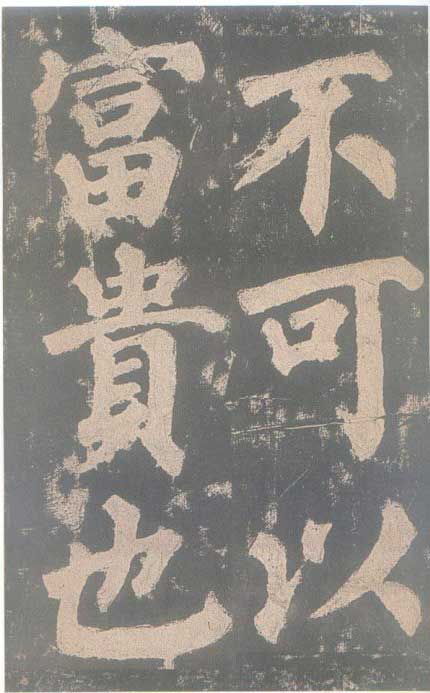 不可以
富貴也